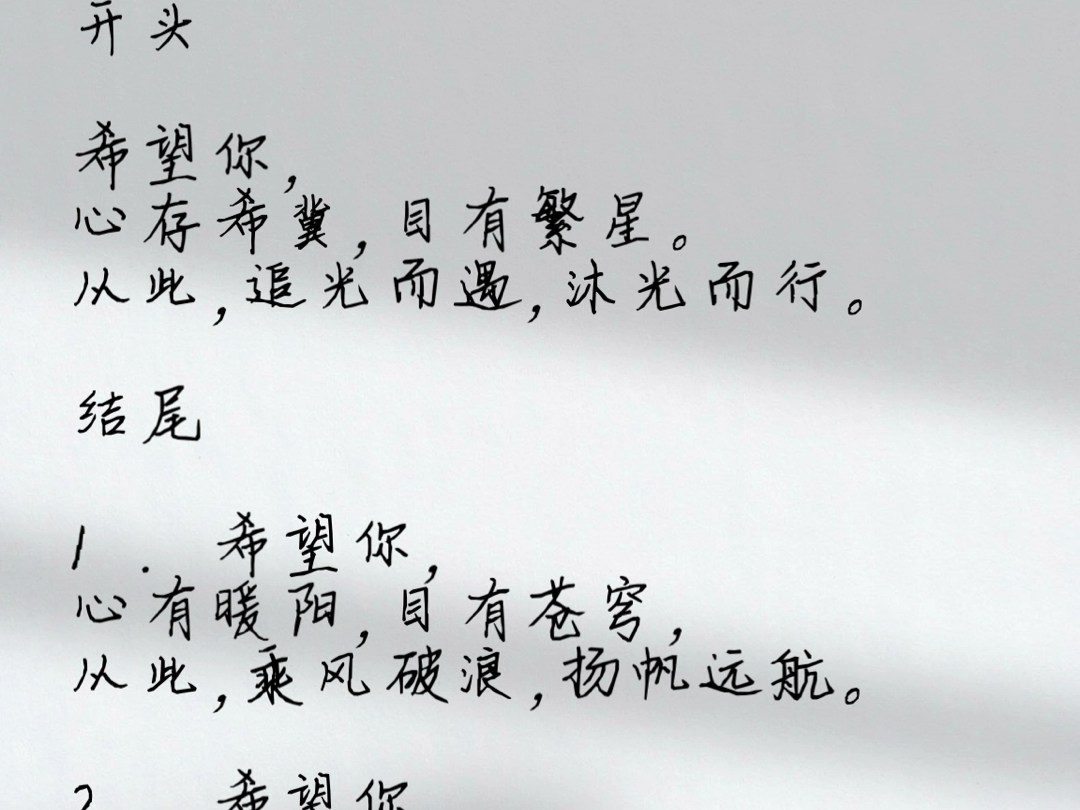 开头
希望你,
心存希冀,目有繁星。
从此,追光而遇,沐光而行。
结尾
1. 希望你,
心有暖阳,目有苍穹,
从此,乘风破浪,扬帆远航。
2 希望你